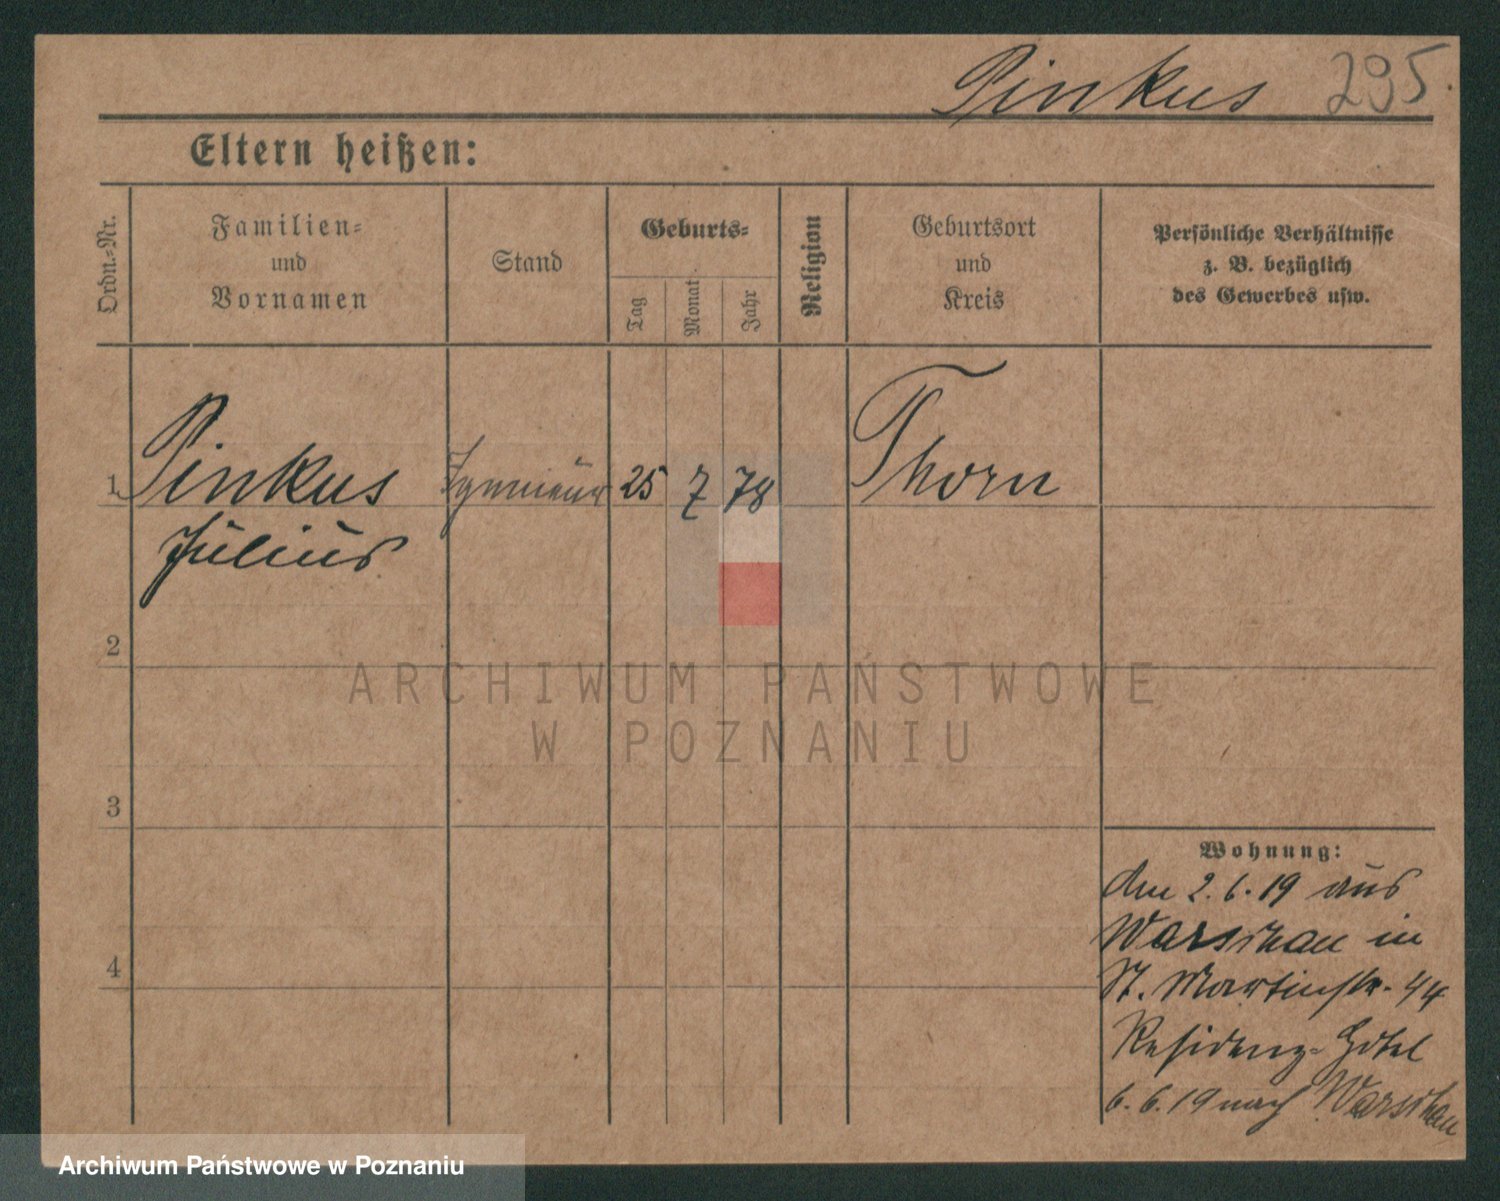 Pinkus 295.
Eltern heißen:
Ordn.-Nr.
Familien-
und
Vornamen
Stand
Geburts-
Tag
Monat
Jahr
Religion
Geburtsort
und
Kreis
Persönliche Verhältnisse
z. B. bezüglich
des Gewerbes usw.
1 Pinkus 25 7 78 Thorn
Julius
2
3
4
Wohnung:
den 2.6.19 aus
Warschau in
St. Martinstr. 44
Residenz-Hotel
6.6.19 nach Warschau
ARCHIWUM PAŃSTWOWE
W POZNANIU
Archiwum Państwowe w Poznaniu